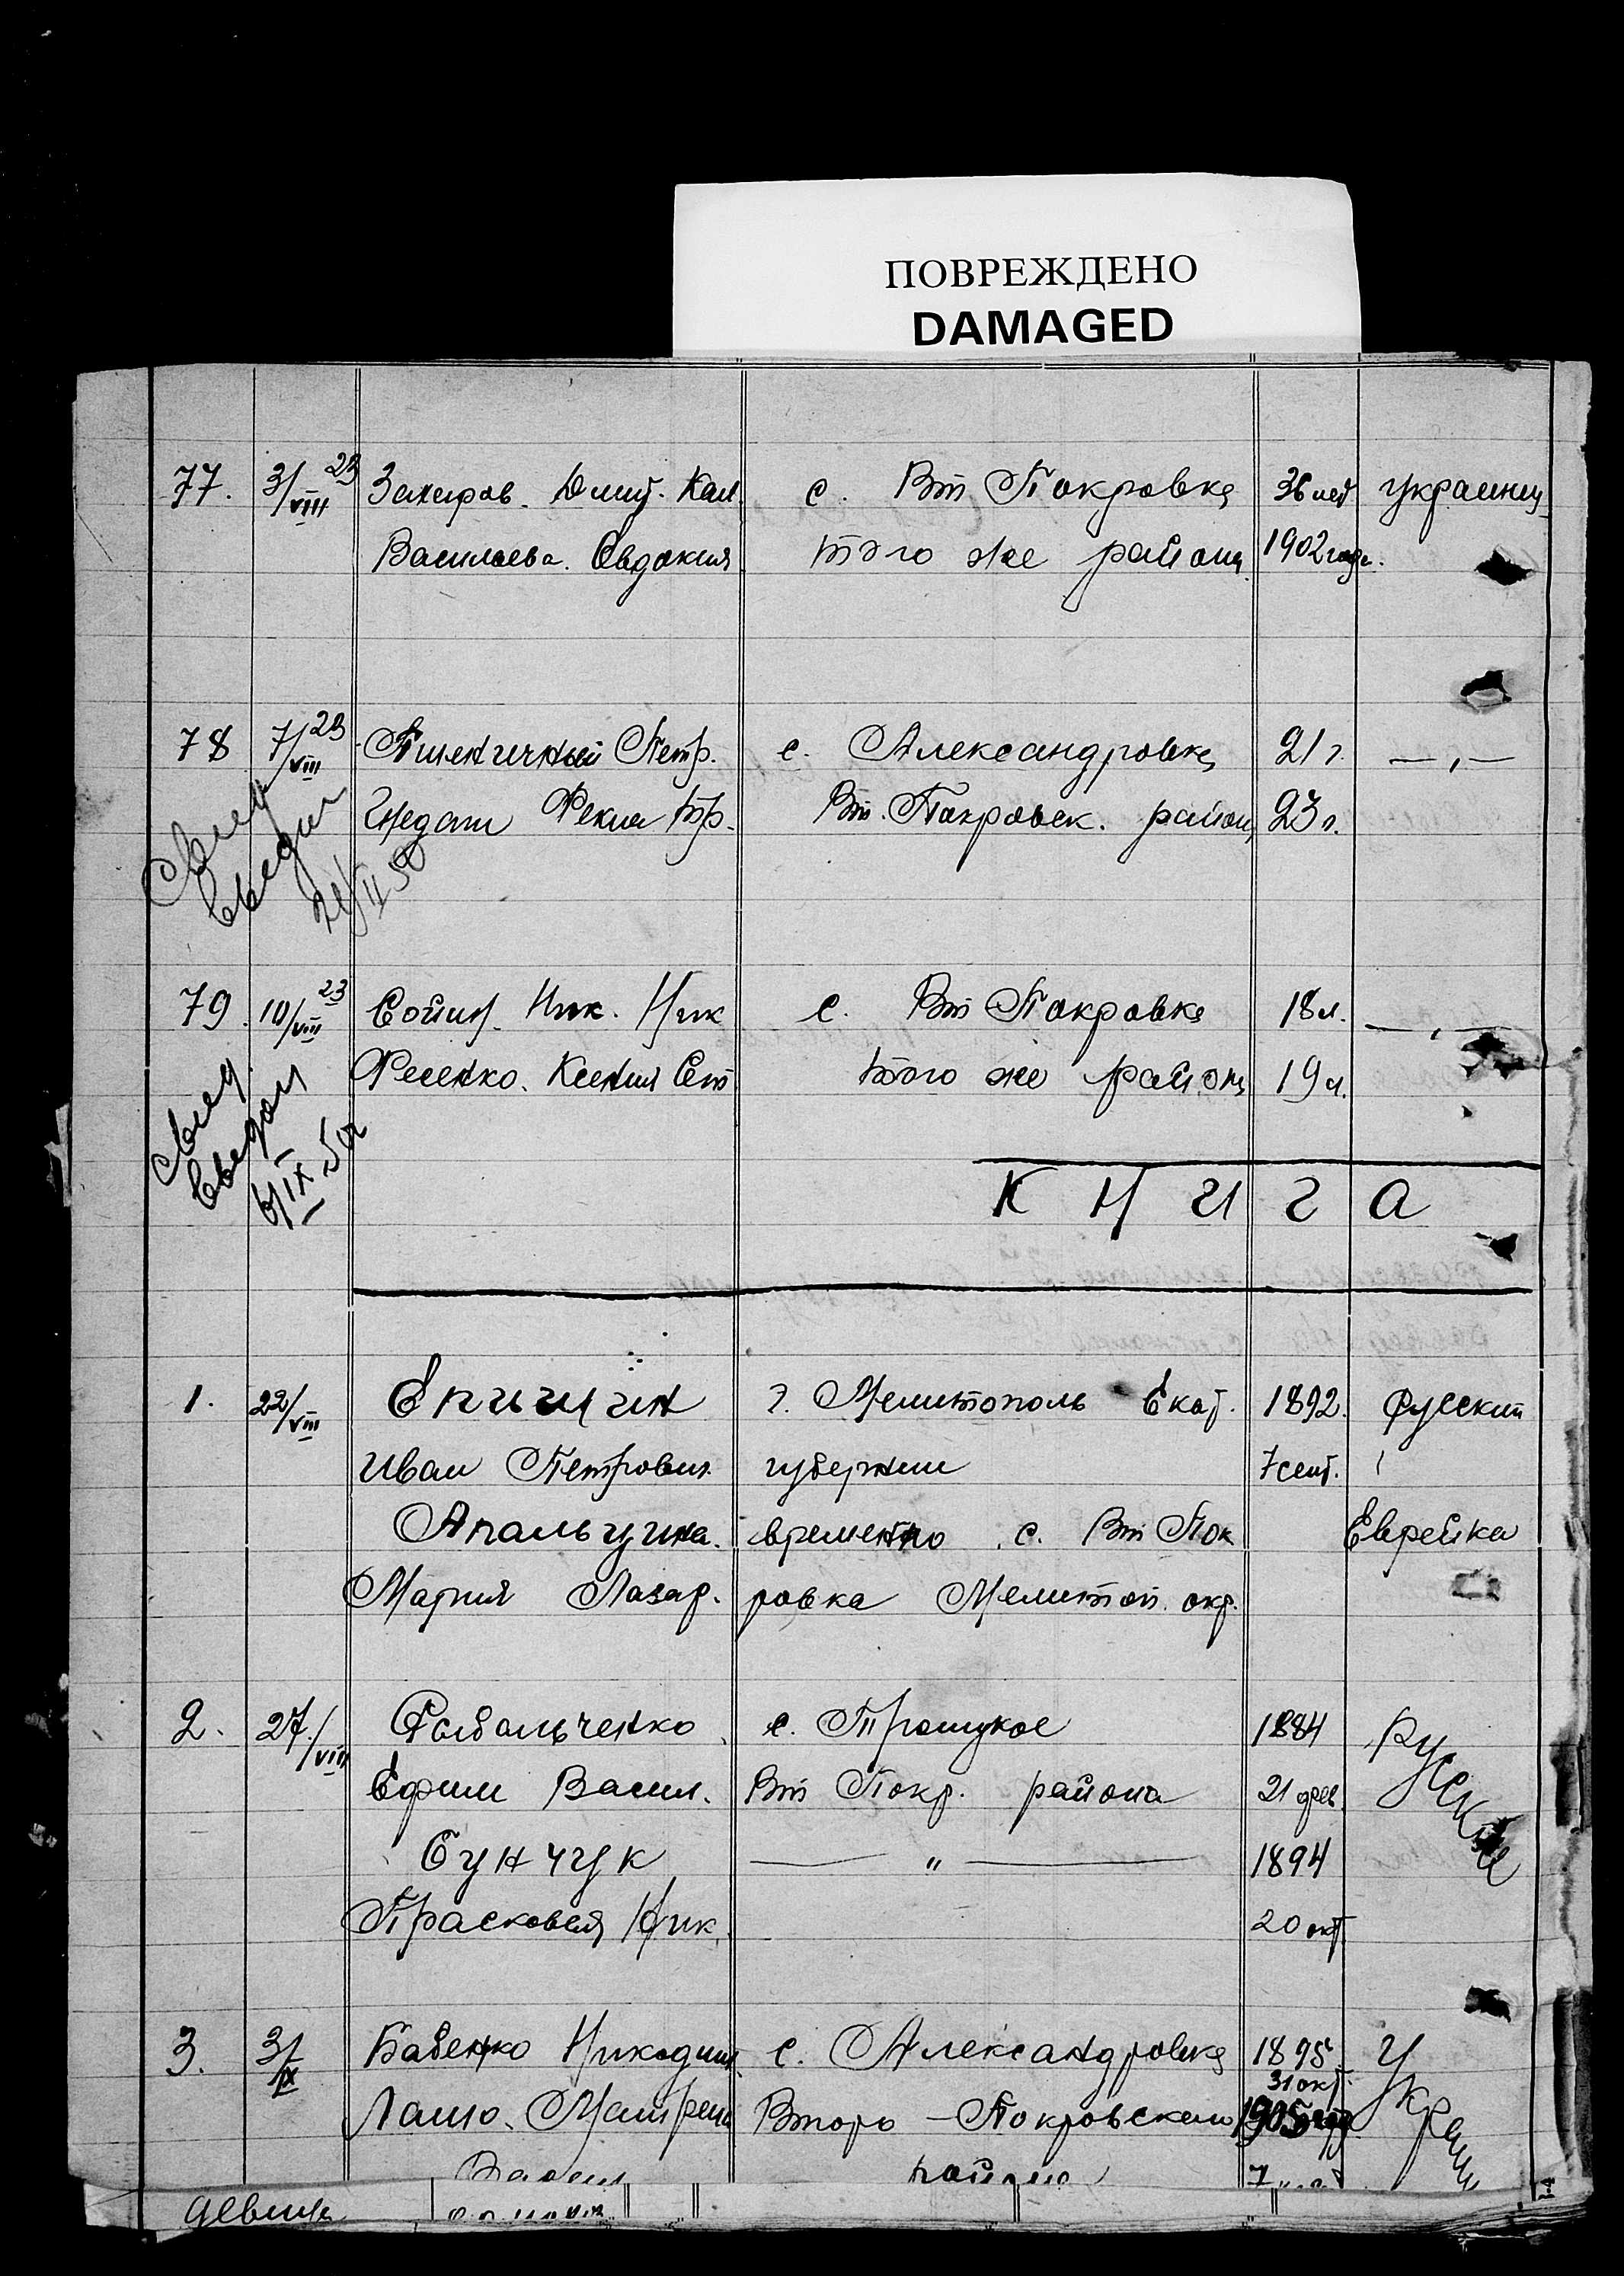 ПОВРЕЖДЕНО
DAMAGED
77. 3/VIII 23 Захаров. Дмит. Кал. с. Вт Покровка 36 лет украинц
Васильева. Евдокия того же района 1902 года.
78 7/VIII 23 Пшеничный Петр. с. Александровка 21 г. —„—
Федот Фекла Тр. Вт. Покровск. район 23 г.
Свид
выдан
21/II 50
79. 10/VIII 23 Ник. Ник с. Вт Покровка 18 л. —„—
Фесенко. Ксения того же района 19 л.
Свид
выдан
6/IX
КНИГА
1. 22/VIII г. Мелитополь Екат. 1892. Русский
Иван Петрович губернии 7 сент.
Апальчина. временно с. Вт Пок Еврейка
Мария Лазар. ровка Мелитоп. окр.
2. 27/VIII Рыбальченко с. Троицкое 1884 Русские
Ефим Васил. Вт Покр. района 21 фев.
Бунчук — „ — 1894
Прасковея Ник. 20 окт
3. 3/IX Бабенко Никодим с. Александровка 1895 Украин
31 окт.
Матрена Второ-Покровского 1905
Васил района 7
девица